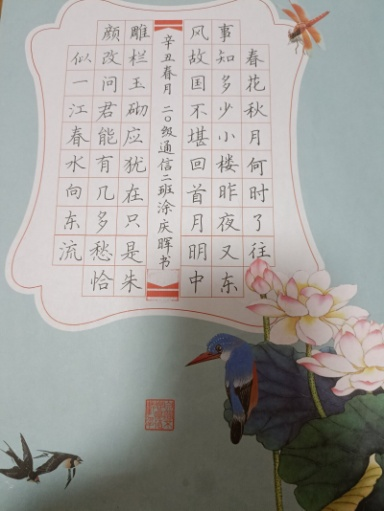 春花秋月何时了往
事知多少小楼昨夜又东
风故国不堪回首月明中
辛丑春月 二〇级通信二班涂庆晖书
雕栏玉砌应犹在只是朱
颜改问君能有几多愁恰
似一江春水向东流